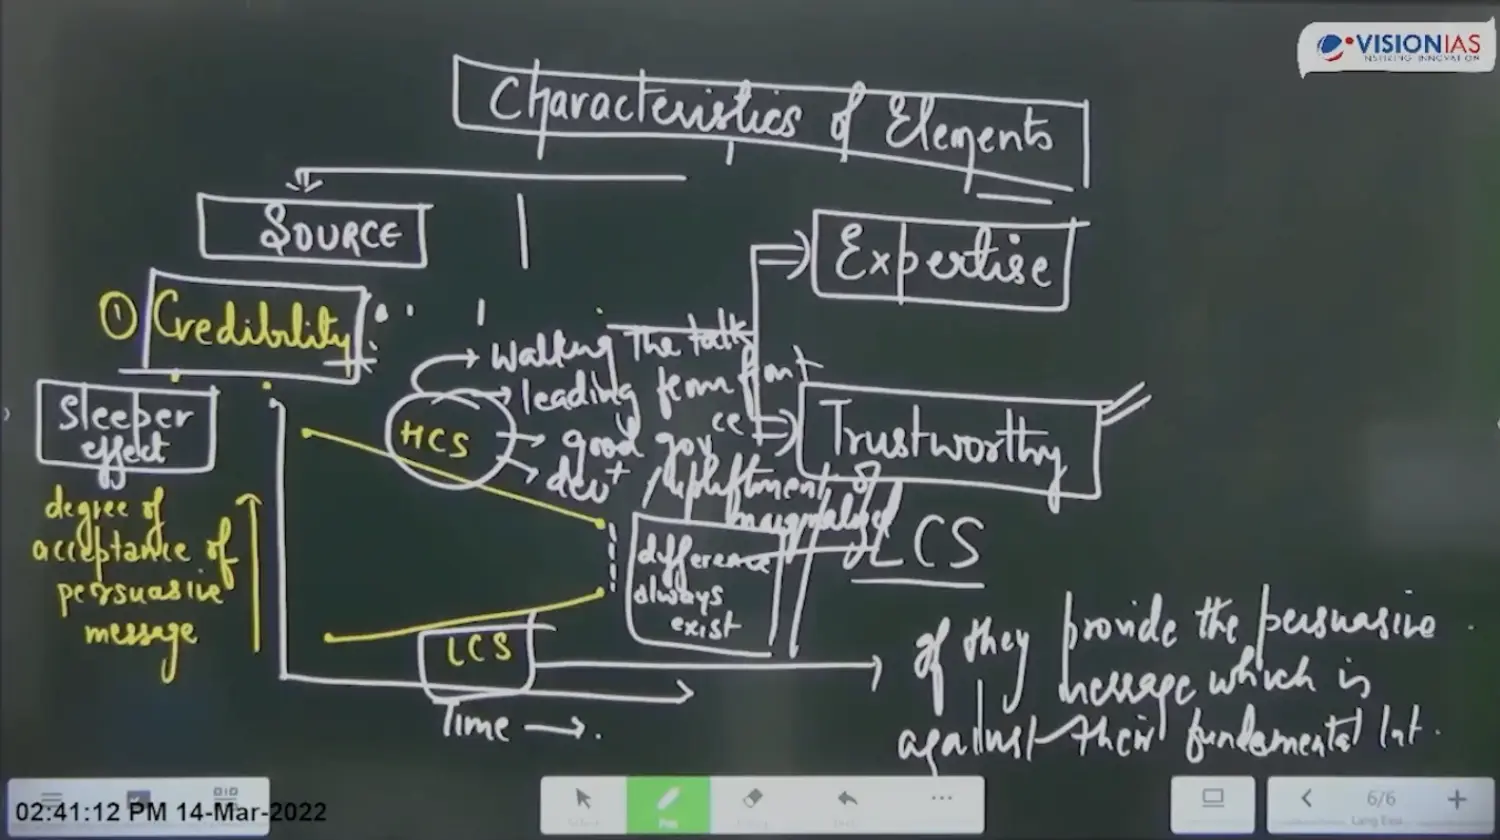 VISIONIAS
INSPIRING INNOVATION
Characteristics of Elements
SOURCE
Expertise
① Credibility
Walking The talk
leading from front
Sleeper
effect
HCS
good govce
Trustworthy
devt / upliftment of
marginalized
degree of
acceptance of
persuasive
message
difference
always
exist
LCS
LCS
If they provide the persuasive
message which is
against their fundamental Int.
Time
02:41:12 PM 14-Mar-2022
6/6